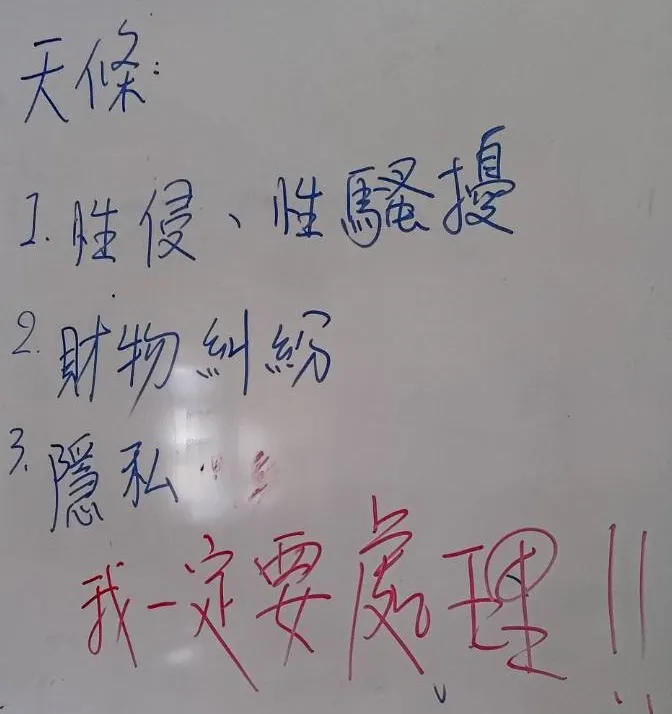 天條:
1. 性侵、性騷擾
2. 財物糾紛
3. 隱私
我一定要處理!!